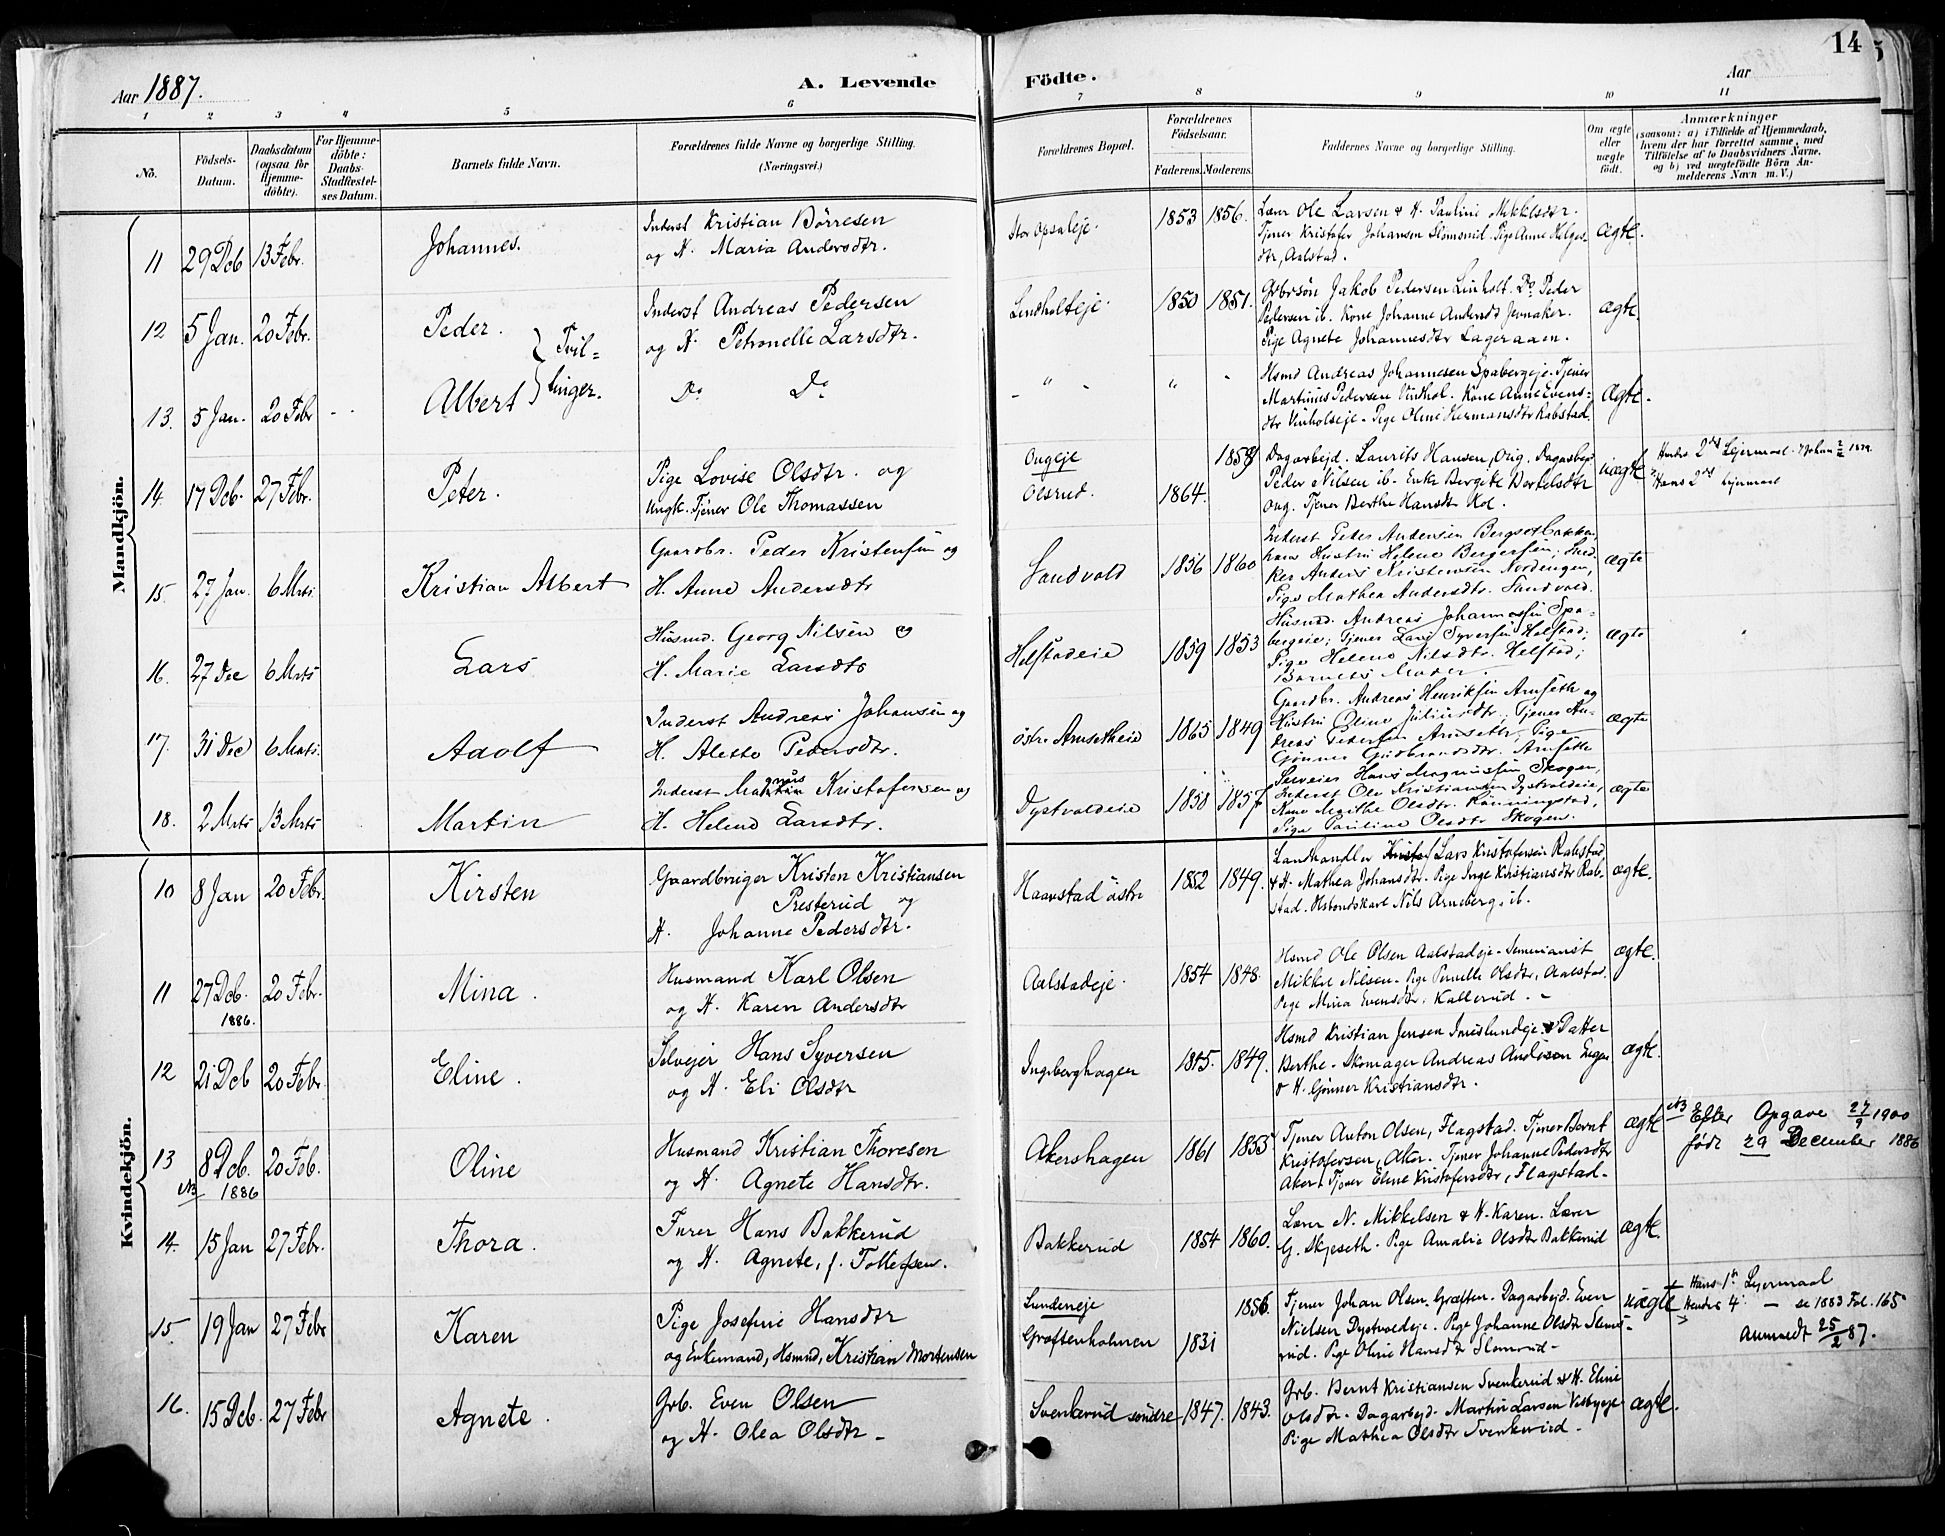 14
Aar 1887.
A. Levende Födte.
Aar
1 2 3 4 5 6 7 8 9 10 11
No.
Födsels-Datum.
Daabsdatum (ogsaa för Hjemme-döbte).
For Hjemme-döbte: Daabs-Stadfæstel-ses Datum.
Barnets fulde Navn.
Forældrenes fulde Navne og borgerlige Stilling. (Næringsvei.)
Forældrenes Bopæl.
Forældrenes Födselsaar.
Faderens. Moderens.
Faddernes Navne og borgerlige Stilling.
Om ægte eller uægte födt.
Anmærkninger
(saasom: a) i Tilfælde af Hjemmedaab, hvem der har forrettet samme, med Tilföielse af to Daabsvidners Navne. og b) ved uægtefödte Börn An-melderens Navn m. V.)
Mandkjön.
11 29 Dcb 13 Febr. Johannes.
Inderst Kristian Börresen
og H. Maria Andersdtr.
Stor Opsaleje. 1853 1856.
Lærer Ole Larsen & H. Pauline Mikkelsdtr.
Tjener Kristofer Johansen Slomsrud. Pige Anne Helges-
dtr, Aalstad.
ægte.
12 5 Jan. 20 Febr. Peder. } Tvil-
Inderst Andreas Pedersen
og H. Petronelle Larsdtr.
Lindholteje. 1850 1851.
Gbrsön Jakob Pedersen Linholt. Do Peder
Pedersen ib. Kone Johanne Andersdt Jevnaker.
Pige Agnete Johannesdtr Lageraaen.
ægte.
13. 5 Jan. 20 Febr Albert } linger.
Do Do
" "
Hsmd Andreas Johannesen Spabergeje. Tjener
Martinus Pedersen Vindhol. Kone Anne Evens-
dtr Vinholseje. Pige Oline Hermansdtr Rabstad.
ægte.
14. 17 Dcb. 27 Febr. Peter.
Pige Lovise Olsdtr. og
Ungk. Tjener Ole Thomassen
Ongeje
Olsrud. 1864. 1859
Dagarbejd. Laurits Hansen, Ong. Dagarbejd
Peder Nilsen ib. Enke Bergite Bertelsdtr
Ong. Tjener Berthe Hansdtr Kol.
uægte
Hendes 2det Lejermaal.
Hans 2det Lejermaal
15. 27 Jan. 6 Mrts. Kristian Albert
Gaardbr. Peder Kristensen og
H. Anne Andersdtr
Sandvold 1856 1860
Inderst Peder Andersen
hans Hustru Helene Bergersen,
Anders Kristensen Nordengen,
Pige Mathea Andersdtr. Sandvold.
ægte
16. 27 Dec 6 Mrts Lars
Husmd. Georg Nilsen og
H. Marie Larsdtr
Helstadeie 1859 1853
Husmd. Andreas Johannesen Spa-
bergeie; Tjener Lars Syversen Helstad;
Pige Helene Nilsdtr. Helstad;
Barnets Moder.
ægte
17. 31 Dec 6 Mrts. Adolf
Inderst Andreas Johansen og
H. Alette Pedersdtr.
östre Arnsetheie 1865 1849
Gaardbr. Andreas Henriksen Arnseth og
Hustru Oline Juliusdtr, Tjener An-
dreas Pedersen Arnseth, Pige
Gönner Gudbrandsdtr. Arnseth
ægte
18. 2 Mrts 13 Mrts Martin
Inderst Kristofersen og
H. Helene Larsdtr.
Dystvoldeie 1850 1857
Selveier Hans Magnussen Skogen,
Inderst Ole Kristiansen Dystvoldeie,
Kone Marthe Olsdtr. Rönningstad,
Pige Pauline Olsdtr Skogen.
ægte
Kvindekjön.
10 8 Jan 20 Febr. Kirsten
Gaardbruger Kristen Kristiansen
Presterud og
H. Johanne Pedersdtr.
Haavstad östre 1852 1849.
Landhandler Lars Kristofersen Rabstad
& H. Mathea Johansdtr. Pige Inge Kristiansdtr Rab-
stad. Husbondskarl Nils Arneberg, ib.
ægte.
11 27 Dcb. 1886. 20 Febr. Mina.
Husmand Karl Olsen
og H. Karen Andersdtr
Aalstadeje. 1854 1848.
Hsmd Ole Olsen Aalstadeje. Seminarist
Mikkel Nilsen. Pige Pernille Olsdtr, Aalstad.
Pige Mina Evensdtr. Kallerud.
ægte.
12 21 Dcb 20 Febr. Eline.
Selvejer Hans Syversen
og H. Eli Olsdtr
Ingeberghagen 1849.
Hsmd Kristian Jensen Imislundeje & Datter
Berthe. Skomager Andreas Enger
& H. Gönner Kristiansdtr.
ægte.
13 8 Dcb. NB 1886 20 Feb. Oline
Husmand Kristian Thoresen
og H. Agnete Hansdtr.
Akershagen 1861 1855
Tjener Anton Olsen, Flagstad. Tjener Bernt
Kristofersen, Aker. Tjener Johanne Pedersdtr
Aker. Tjener Eline Kristofersdtr, Flagstad.
ægte
NB Efter Opgave 27/9 1900
født 29 December 1886
14. 15 Jan 27 Febr. Thora.
Furer Hans Bakkerud
og H. Agnete, f. Tollefsen.
Bakkerud 1854 1860.
Lærer N. Mikkelsen & H. Karen. Lærer
G. Skjeseth. Pige Amalie Olsdtr Bakkerud
ægte.
15. 19 Jan 27 Febr Karen
Pige Josefine Hansdtr
og Enkemand, Hsmnd, Kristian Mortensen
Lundeneje
Græftenholmen 1831 1856.
Tjener Johan Olsen Græften. Dagarbejd. Even
Nielsen Dystvoldeje. Pige Johanne Olsdtr Sloms-
rud. Pige Oline Hansdtr Slomsrud.
uægte
Hans 1ste Lejermaal
Hendes 4. — se 1883 Fol. 165
Anmeldt 25/2 87.
16. 15 Dcb. 27 Febr Agnete.
Grb. Even Olsen
og H. Olea Olsdtr.
Svenkerud söndre 1847. 1843.
Grb. Bernt Kristiansen Svenkerud & H. Eline
Olsdtr. Dagarbejd. Martin Larsen Velbyeje
Pige Mathea Olsdtr Svenkerud.
ægte.